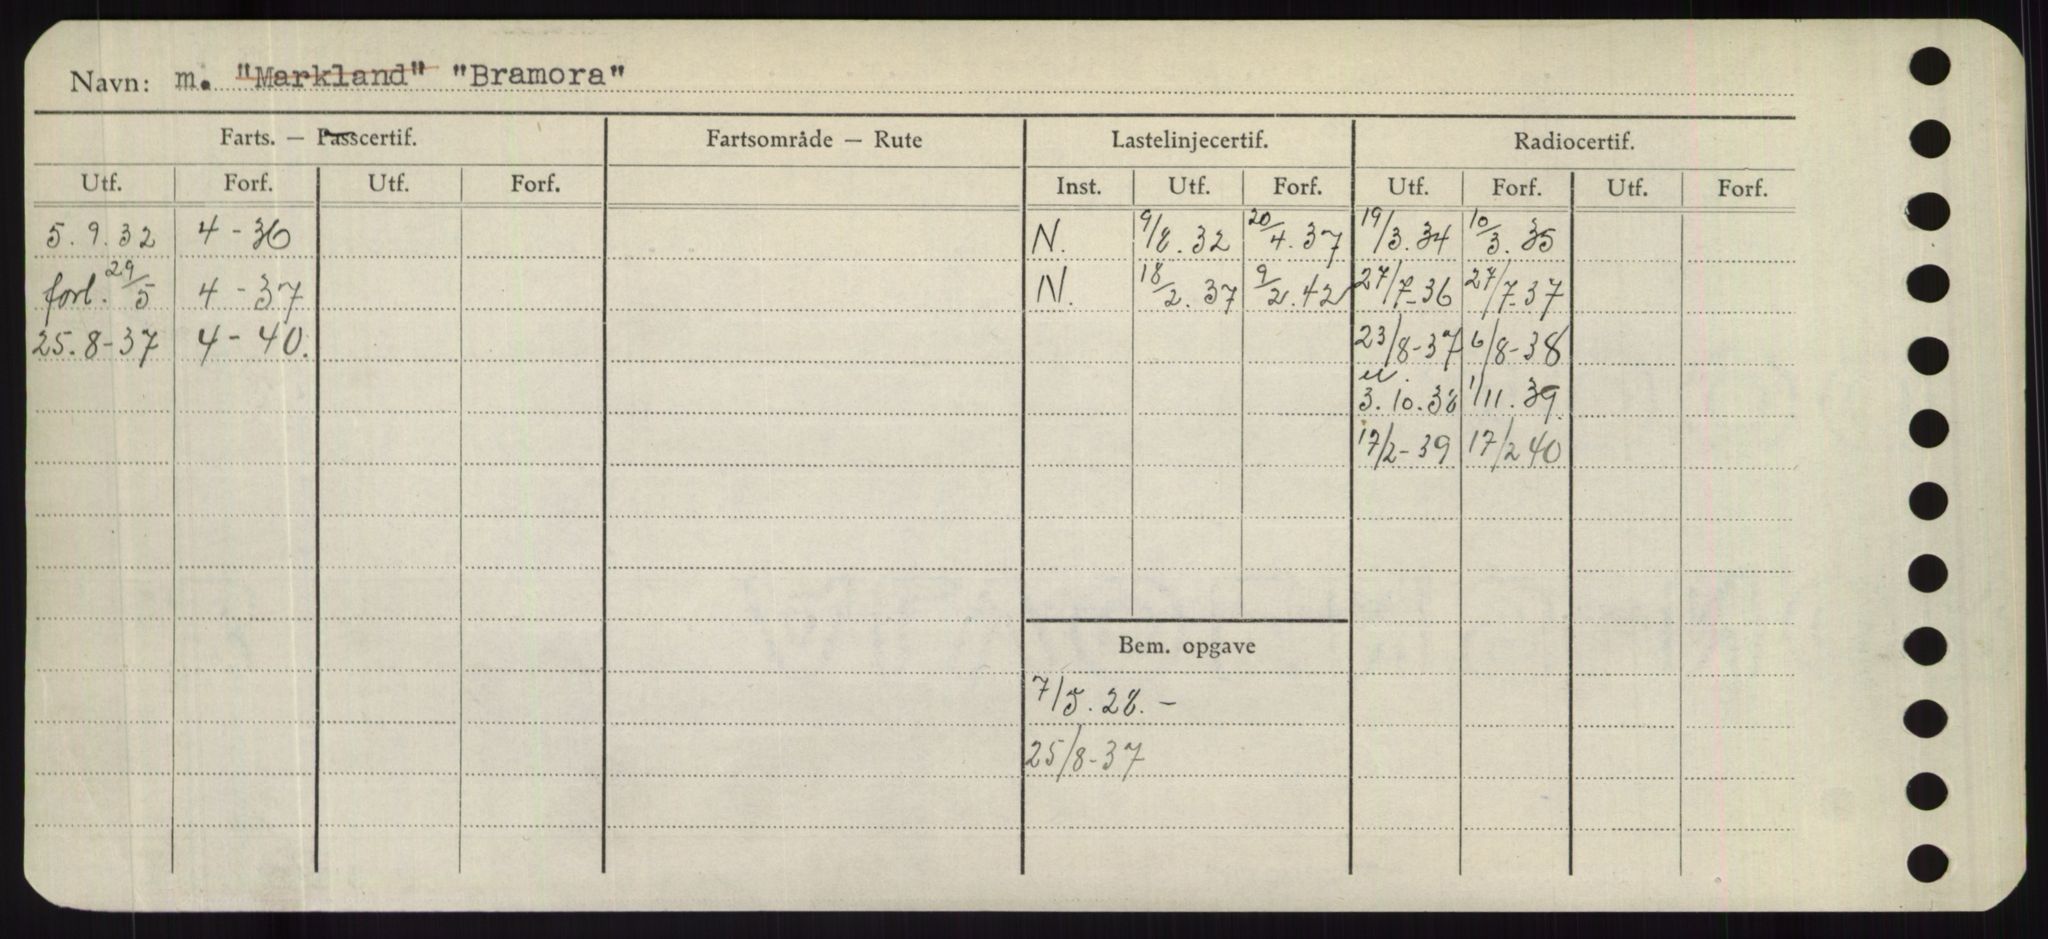 Navn: m. "Markland" "Bramora"
Farts. — Passcertif. Fartsområde — Rute Lastelinjecertif. Radiocertif.
Utf. Forf. Utf. Forf. Inst. Utf. Forf. Utf. Forf. Utf. Forf.
5.9.32 4-36 N. 9/8.32 20/4.37 19/3.34 10/3.35
forl. 29/5 4-37 N. 18/2.37 9/2.42 27/7-36 27/7-37
25.8-37 4-40. 23/8-37 6/8-38
3.10.38 1/11.39
17/2-39 17/2 40
Bem. opgave
7/5.28.-
25/8-37